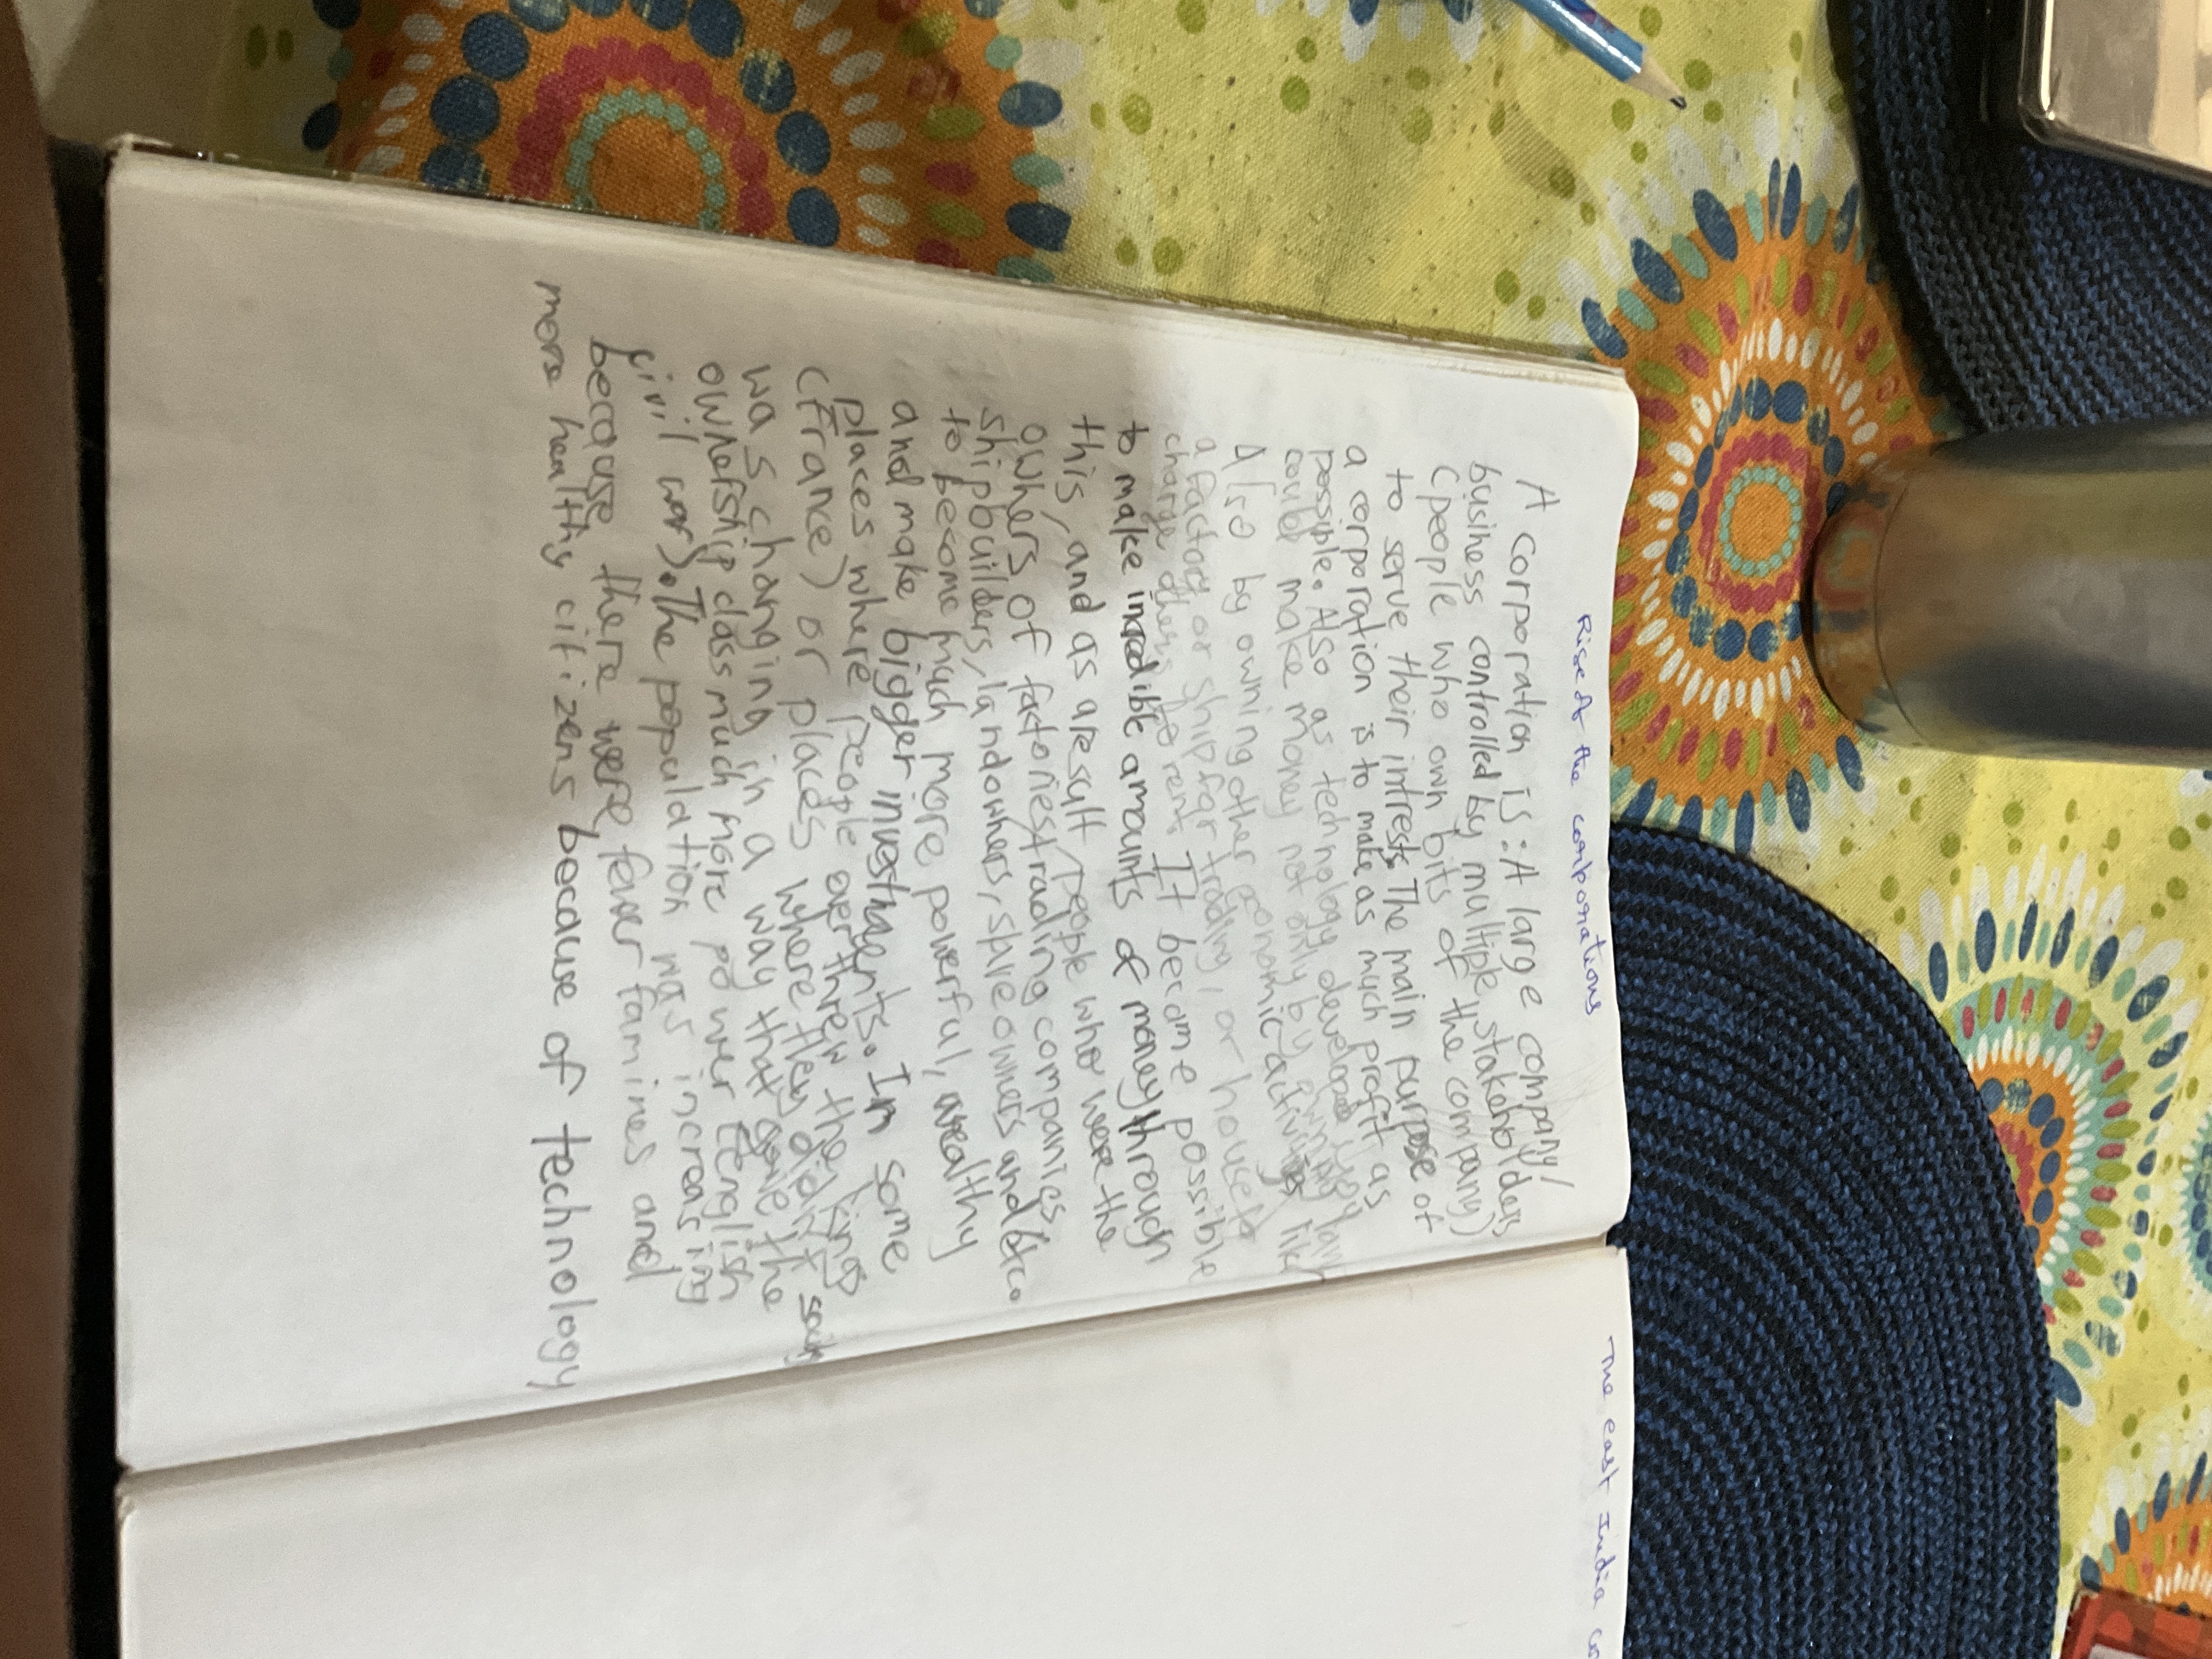 Rise of the corporations
A corporation is: A large company/
business controlled by multiple stakeholders
(people who own bits of the company)
to serve their intrests. The main purpose of
a corporation is to make as much profit as
possible. Also as technology developed you can
could make money not only by owning land
Also by owning other economic activities like
a factory or ship for trading, or houses to
charge others to rent. It became possible
to make incredible amounts of money through
this, and as a result people who were the
owners of factories trading companies
shipbuilders, landowners, share owners and etc.
to become much more powerful, wealthy
and make bigger investments. In some
places where people overthrew the king
(France) or places where they didn't
was changing in a way that gave the
ownership class much more power (English
civil war). The population was increasing
because there were fewer famines and
more healthy citizens because of technology
The east India